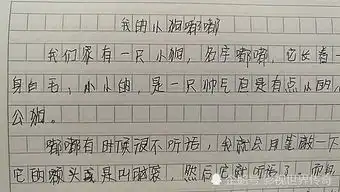 我的小狗嘟嘟
我们家有一只小狗，名字嘟嘟，它长着一
身白毛，小小的，是一只帅气但是有点小的小
公狗。
嘟嘟有时候很不听话，我就会用筆敲一下
它的额头或是叫脑袋，然后它就听话了，而